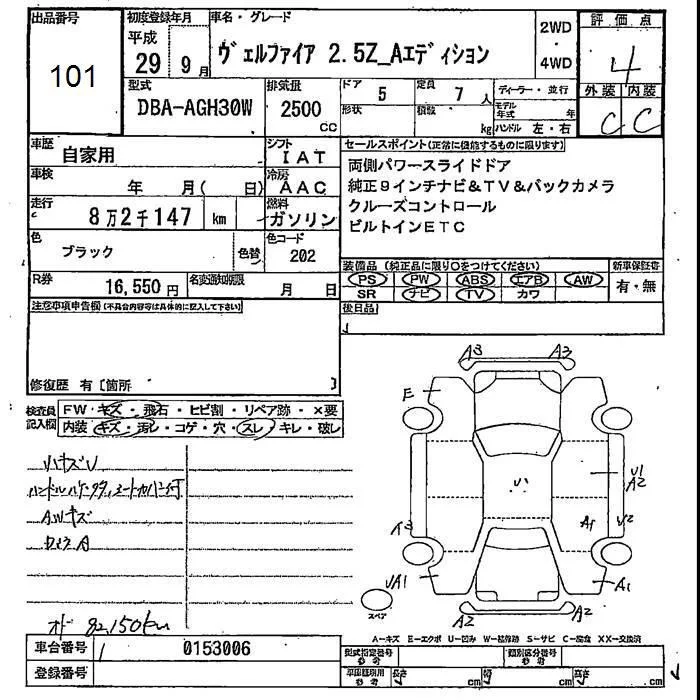 出品番号
101
初度登録年月
平成
29 9月
車名・グレード
ヴェルファイア 2.5Z_Aエディション
2WD
4WD
評価点
4
外装 内装
C C
型式
DBA-AGH30W
排気量
2500
cc
ドア
5
定員
7 人
形状
積載
kg
ディーラー・並行
モデル年式 年
ハンドル 左・右
車歴
自家用
シフト
IAT
車検
年 月( 日)
冷房
AAC
走行
8万2千147 km
燃料
ガソリン
色
ブラック
色替
色コード
202
R券
16,550円
名変通知期限
月 日
セールスポイント(正常に機能するものに限ります)
両側パワースライドドア
純正9インチナビ&TV&バックカメラ
クルーズコントロール
ビルトインETC
装備品(純正品に限り○をつけてください)
PS PW ABS エアB AW
SR ナビ TV カワ
新車保証書
有・無
後日品
注意事項申告欄(不具合内容等は具体的に記入して下さい)
修復歴 有〔箇所 〕
検査員記入欄
FW・キズ・飛石・ヒビ割・リペア跡・×要
内装・キズ・汚レ・コゲ・穴・スレ・キレ・破レ
小キズU
AWキズ
オド 82,150km
A3 A3
E
ハ
U1
A2
A3
A1
U2
UA1
A1
A2 A2
スペア
A-キズ E-エクボ U-凹み W-補修跡 S-サビ C-腐食 XX-交換済
車台番号
0153006
登録番号
型式指定番号
参考
類別区分番号
参考
車庫証明用
参考
長さ cm
幅 cm
高さ cm